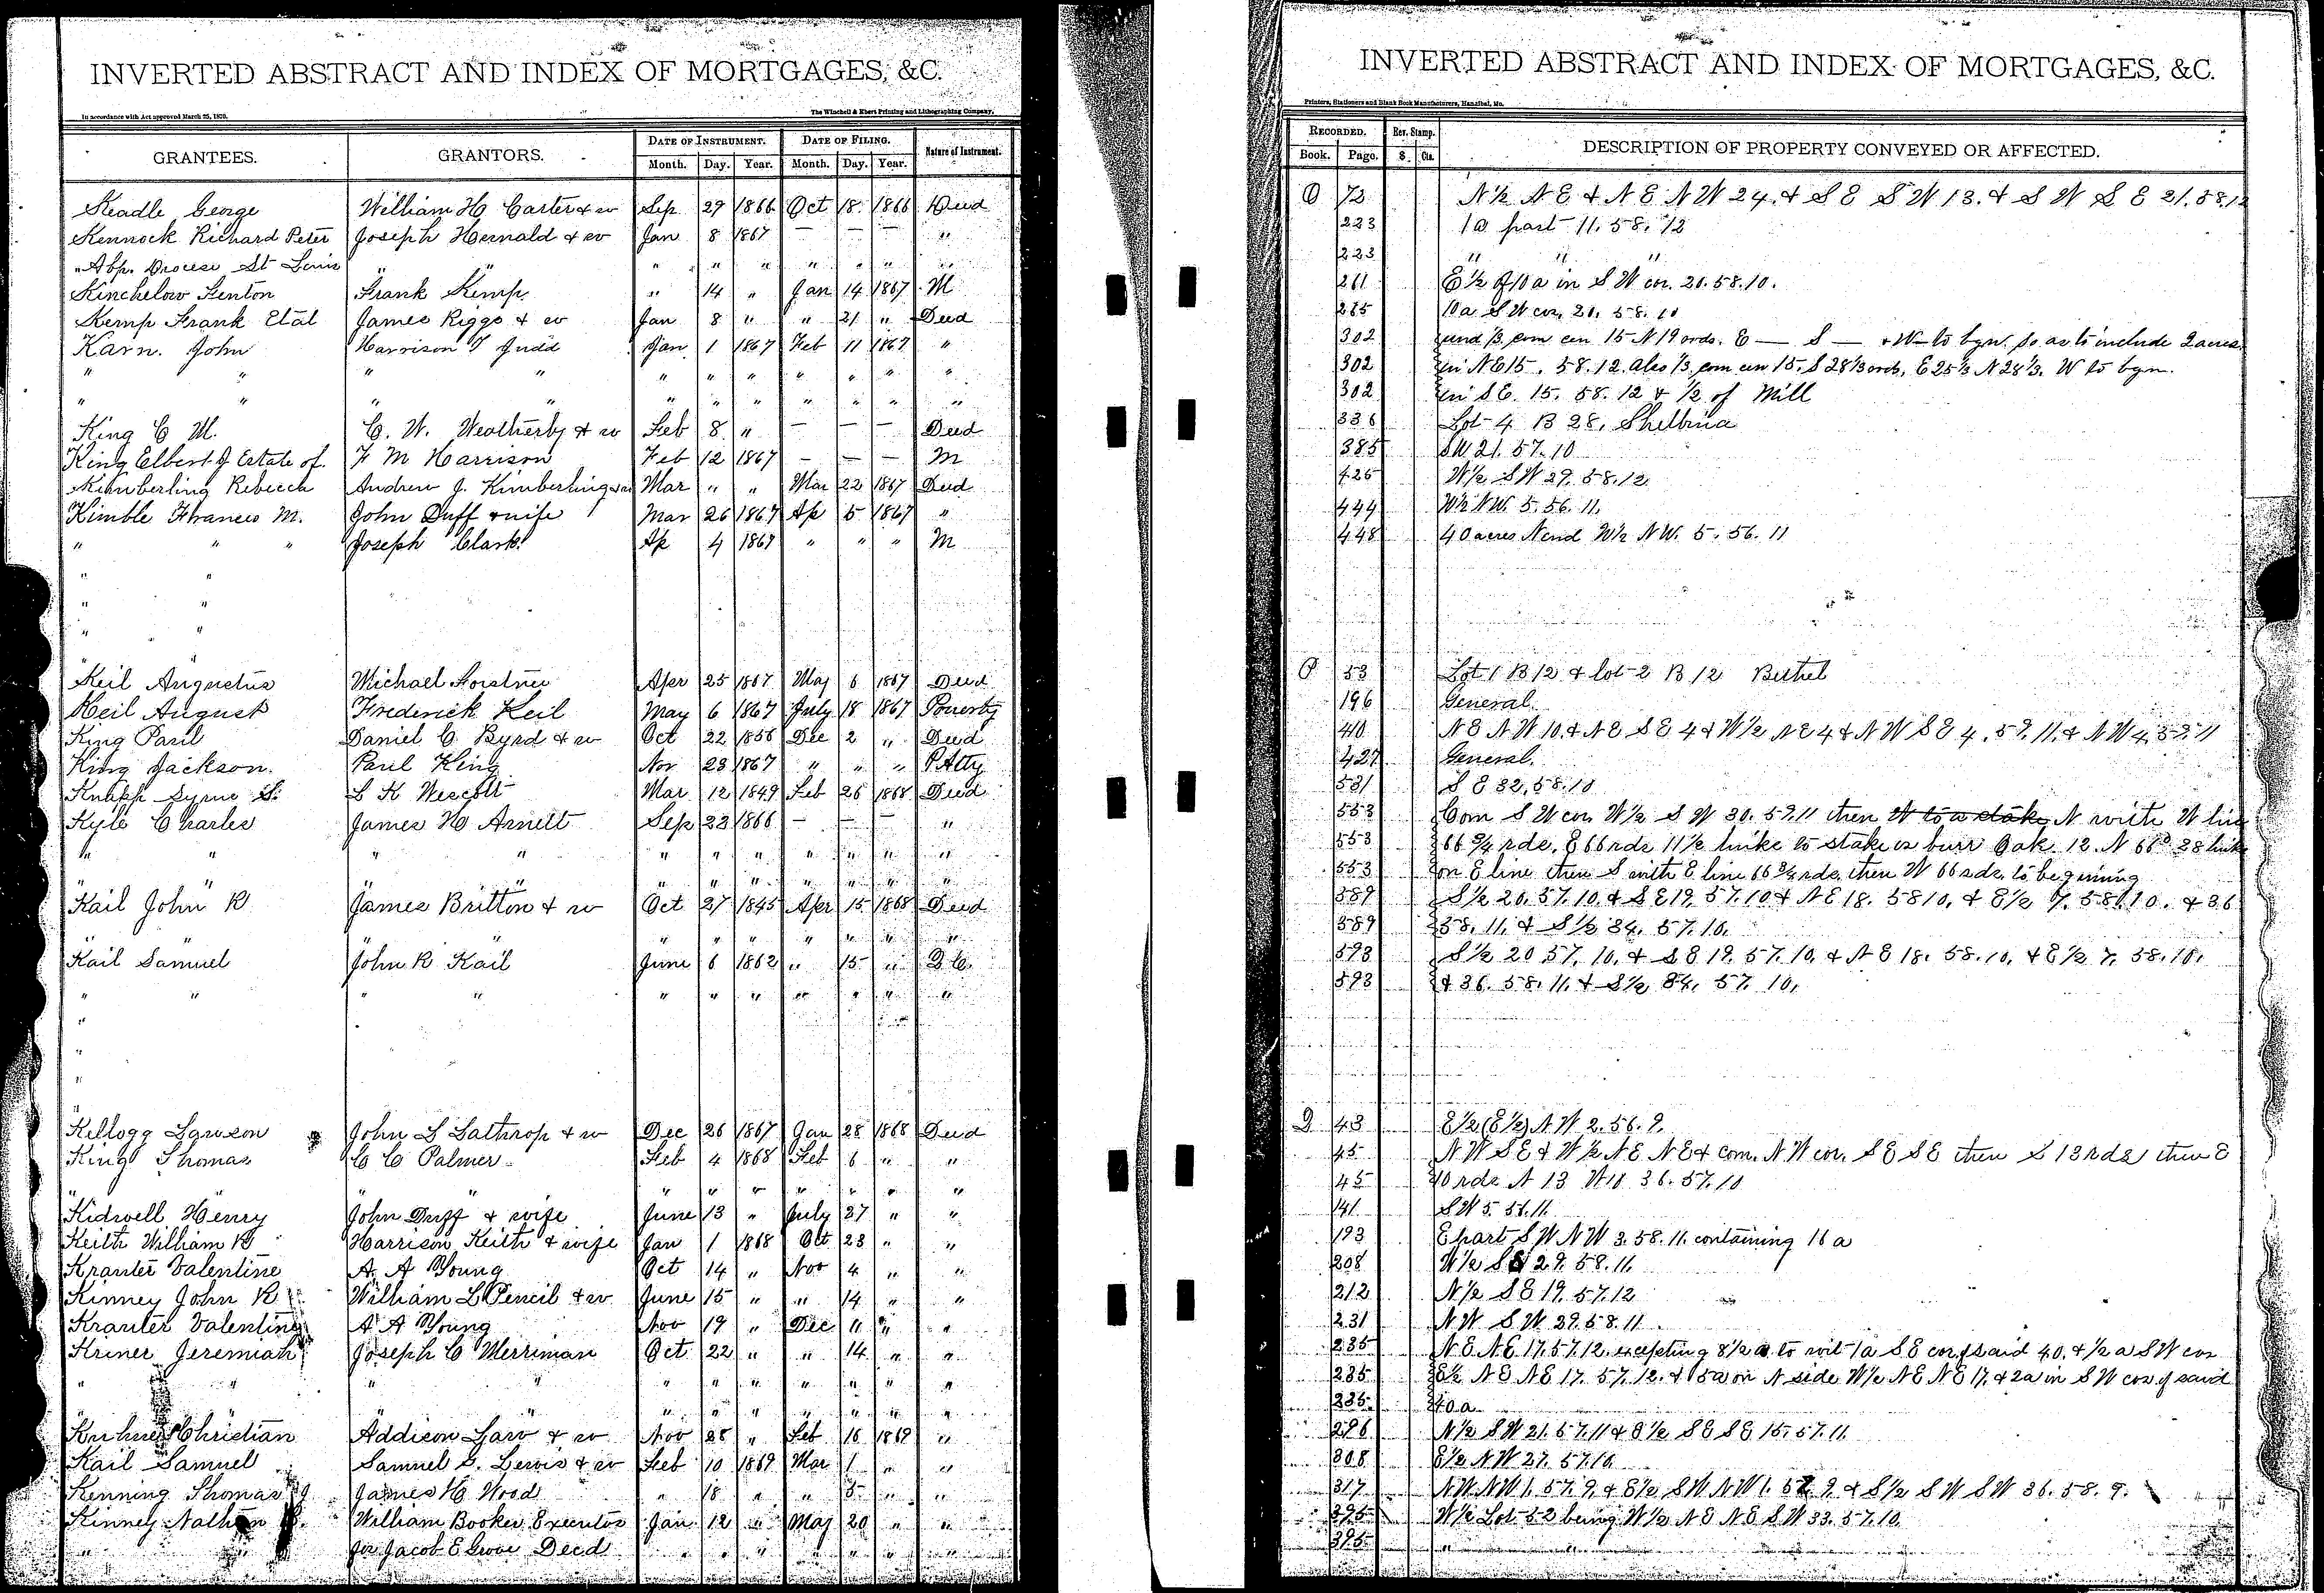 INVERTED ABSTRACT AND INDEX OF MORTGAGES, &C.
In accordance with Act approved March 25, 1870.
The Winchell & Ebert Printing and Lithographing Company,
GRANTEES. GRANTORS. DATE OF INSTRUMENT. DATE OF FILING. Nature of Instrument.
Month. Day. Year. Month. Day. Year.
Keadle George William H Carter & w Sep 29 1866 Oct 18 1866 Deed
Kennock Richard Peter Joseph Hernald & w Jan 8 1867 — — — "
" Abp. Diocese St Louis " " " " " " " " "
Kinchelow Fenton Frank Kemp " 14 " Jan 14 1867 M
Kemp Frank Etal James Riggs & w Jan 8 " " 21 " Deed
Karn. John Harrison T Judd Jan 1 1867 Feb 11 1867 "
" " " " " " " " " " "
" " " " " " " " " " "
King C M. C. W. Weatherby & w Feb 8 " — — — Deed
King Elbert J Estate of F M Harrison Feb 12 1867 — — — M
Kimberling Rebecca Andrew J. Kimberling Mar " " Mar 22 1867 Deed
Kimble Frances M. John Duff & wife Mar 26 1867 Ap 5 1867 "
" " " Joseph Clark Ap 4 1867 " " " M
" "
" "
" "
"
Keil Augustus Michael Forstner Apr 25 1867 May 6 1867 Deed
Keil August Frederick Keil May 6 1867 July 18 1867
King Paul Daniel C Byrd & w Oct 22 1856 Dec 2 " Deed
King Jackson. Paul King Nov 23 1867 " " " P Atty
Knapp S. S K Wescott Mar 12 1849 Feb 26 1868 Deed
Kyle Charles James H Arnett Sep 23 1866 — — — "
" " " " " " " " " " "
" " " " " " " " " "
Kail John R James Britton & w Oct 27 1845 Apr 15 1868 Deed
" " " " " " " "
Kail Samuel John R Kail June 6 1862 " 15 " Q C.
" " " " " " " " " " "
"
"
"
"
Kellogg Lawson John S Lathrop & w Dec 26 1867 Jan 28 1868 Deed
King Thomas C C Palmer Feb 4 1868 Feb 6 " "
" " " " " " " " "
Kidwell Henry John Duff & wife June 13 " July 27 " "
Keith William B Harrison Keith & wife Jan 1 1868 Oct 23 " "
Krauter Valentine A. A Young Oct 14 " Nov 4 " "
Kinney John R William L Pencil & w June 15 " " 14 " "
Krauter Valentine A A Young Nov 19 " Dec 11 " "
Kriner Jeremiah Joseph C Merriman Oct 22 " " 14 " "
" " " " " " " " " " "
" " " " " " " " "
Christian Addison Law & w Nov 28 " Feb 16 1869 "
Kail Samuel Samuel S. Lewis & w Feb 10 1869 Mar 1 " "
Kenning Thomas J James H Wood " 18 " " 5 " "
Kinney Nathan William Booker Executor Jan 12 " May 20 " "
" " for Jacob E Grove Decd " " " " " " "
INVERTED ABSTRACT AND INDEX OF MORTGAGES, &C.
Printers, Stationers and Blank Book Manufacturers, Hannibal, Mo.
RECORDED. Rev. Stamp. DESCRIPTION OF PROPERTY CONVEYED OR AFFECTED.
Book. Page. $ Cts.
O 72 N½ N E & N E N W 24. & S E S W 13. & S W S E 21. 58. 12
223 1a part 11. 58. 12
223 " " "
261 E½ of 10 a in S W cor. 20. 58. 10.
285 10a S W cor. 20. 58. 10
302 und ⅓ com cen 15 N 19 ords. E — S — & W to bgn. so as to include 2 acres
302 in N E 15. 58. 12. also ⅓ com cen 15. S 28⅓ords, E 25⅓ N 28⅓. W to bgn.
302 in S E. 15. 58. 12 & ½ of Mill
336 Lot 4 B 28, Shelbina
385 S W 21. 57. 10
425 W½ S W 29. 58. 12
444 W½ N W. 5. 56. 11.
448 40 acres N end W½ N W. 5. 56. 11
P 53 Lot 1 B 12 & lot 2 B 12 Bethel
196 General.
410 N E N W 10. & N E S E 4 & W½ N E 4 & N W S E 4. 57. 11. & N W 4. 57. 11
427 General.
531 S E 32. 58. 10
553 Com S W cor. W½ S W 30. 57. 11 then W to a stake N with W line
553 66¾ rds. E 66 rds 11½ links to stake is burr Oak 12. N 66° 28 links
553 on E line then S with E line 66¾ rds. then W 66 rds. to beginning
589 S½ 20. 57. 10. & S E 19. 57. 10 & N E 18. 58 10, & E½ 7. 58. 10. & 36
589 58. 11. & S½ 34. 57. 10.
593 S½ 20 57. 10. & S E 19. 57. 10. & N E 18. 58. 10, & E½ 7. 58. 10,
593 & 36. 58. 11. & S½ 34. 57. 10,
Q 43 E½ (E½) N W 2. 56. 9.
45 N W S E & W½ N E N E & com. N W cor. S E S E then S 13 rds, then E
45 10 rds N 13 W 10 36. 57. 10
141 S W 5. 56. 11
193 E part S W N W 3. 58. 11. containing 16 a
208 W½ S W 29. 58. 11.
212 N½ S E 19. 57. 12
231 N W S W 29. 58. 11.
235 N E N E 17. 57. 12. excepting 8½ a to wit 1a S E cor of said 40. & ½ a S W cor
235 E½ N E N E 17. 57. 12. & 5a on N side W½ N E N E 17. & 2a in S W cor of said
235 40a.
296 N½ S W 21. 57. 11 & E½ S E S E 15. 57. 11
308 E½ N W 27. 57. 10.
317 N W N W 1. 57. 9. & E½ S W N W 1. 57. 9. & S½ S W S W 36. 58. 9.
395 W½ Lot 52 being W½ N E N E S W 33. 57. 10
395 "